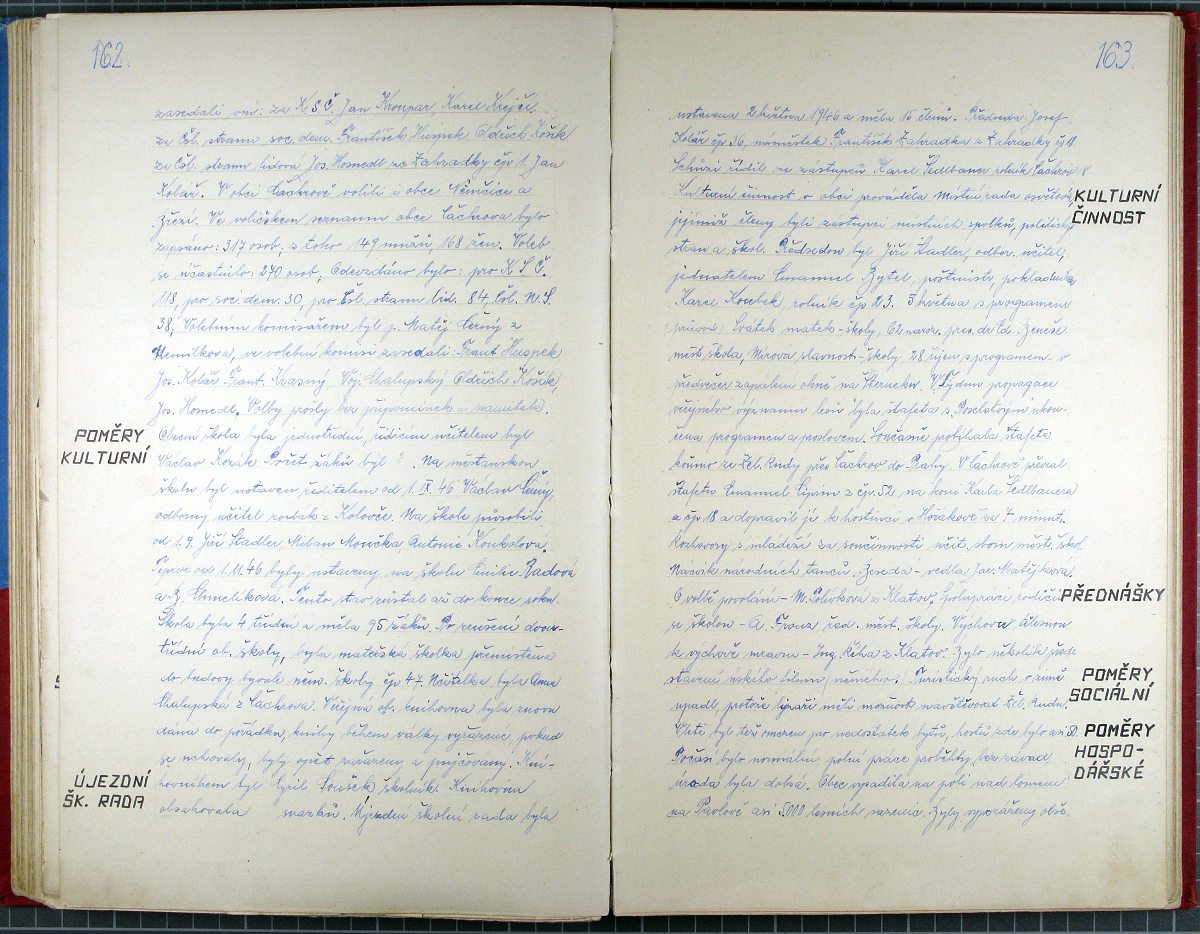 162
zasedali vm: za K.S.Č. Jan Kroupar, Karel Krejčí.
za Čsl. stranu soc. dem. František Huspek, Oldřich Košík
za Čsl. stranu lidovou Jos. Hosnedl ze Zahradky čp 1. Jan
Kolář. V obci Čachrově volili i obce Němčice a
Zřezí. Ve voličském seznamu obce Čachrova bylo
zapsáno: 317 osob, z toho 149 mužů 168 žen. Voleb
se účastnilo: 270 osob, Odevzdáno bylo: pro K.S.Č.
118, pro soc. dem. 30, pro Čsl. stranu lid. 84, Čsl. N.S.
38, Volebním komisařem byl p. Matěj Černý z
Nemilkova, ve volební komisi zasedali: Frant Huspek
Jos. Kolář Frant. Krasný Voj. Chalupský Oldřich Košík,
Jos. Hosnedl, Volby prošly bez připomínek a námitek.
POMĚRY
KULTURNÍ
Obecní škola byla jednotřídní, řídícím učitelem byl
Václav Kozák. Počet žáků byl 2 . Na měšťanskou
školu byl ustaven ředitelem od 1. IX. 46 Václav Černý,
odborný učitel rodák z Kolovče. Na škole působili
od 1.9. Jiří Stadler, Milan Moučka Antonie Koukolova.
Teprve od 1.11.46 byly ustaveny na školu Emilie Radová
a Z. Chmelíková. Tento stav zůstal až do konce roku.
Škola byla 4 třídní a měla 95 žáků. Po zrušení dvou-
třídní ob. školy, byla mateřská školka přemístěna
do budovy bývalé něm. školy čp 47. Učitelka byla Anna
Chalupská z Čachrova. Veřejná ob. knihovna byla znovu
dána do pořádku, knihy během války vyřazené, pokud
se uchovaly, byly opět zařazeny a půjčovány. Kni-
hovníkem byl Cyril Souček školník. Knihovna
ÚJEZDNÍ
ŠK. RADA
obsahovala svazků. Újezdní školní rada byla
163.
ustavena 2 května 1946 a měla 15 členů. Předseda: Josef
Kolář čp 36, náměstek: František Zahradka z Zahradky čp 11.
Schůzi řídil ze zástupců Karel Šedlbauer rolník Čachrov 18
KULTURNÍ
ČINNOST
Kulturní činnost v obci prováděla Místní rada osvětová,
jejímiž členy byli zástupci místních spolků, politick,
stran a škol. Předsedou byl Jiří Stadler, odbor. učitel,
jednatelem Emanuel Zytel, poštmistr, pokladníkem
Karel Koubek rolník čp 23. 5 května s programem
průvod, Svátek matek-školy, Osl. naroz. pres. dr Ed. Beneše
měšť. škola, Mírová slavnost-školy. 28. říjen s programem v
předvečer zapálení ohně na Šternku. V Týdnu propagace
veřejného významu lesů byla štafeta s Poselstvím ukon-
čena programem a proslovem. Současně probíhala štafeta
koňmo ze Žel. Rudy přes Čachrov do Prahy. V Čachrově převzal
štafetu Emanuel Ciprin z čp. 52 na koni Karla Šedlbauera
z čp 18 a dopravil ji k hostinci v Hořákově za 7 minut.
Rozhovory s mládeží za součinnosti učit. sboru měšť. škol.
Nácvik národních tanců. Beseda - vedla Jar. Matějková.
PŘEDNÁŠKY
O volbě povolání - M. Polívková z Klatov, Spolupráci rodičů
se školou - A. Franz řed. měšť. školy. Výchovou tělesnou
k výchově mravní - Ing. Říha z Klatov. Bylo několik před-
POMĚRY
SOCIÁLNÍ
stavení úzkého filmu (němého). Turistický ruch v zimě
upadl, protože lyžaři měli možnost navštěvovat Žel. Rudu.
POMĚRY
HOSPO-
DÁŘSKÉ
V létě byl též omezen pro nedostatek bytů, hostů zde bylo asi 50.
Počasí bylo normální polní práce proběhly, bez závad
úroda byla dobrá. Obec vysadila na poli nad lomem
na Pavlově asi 5.000 lesních sazenic. Byly vyprázeny olše-